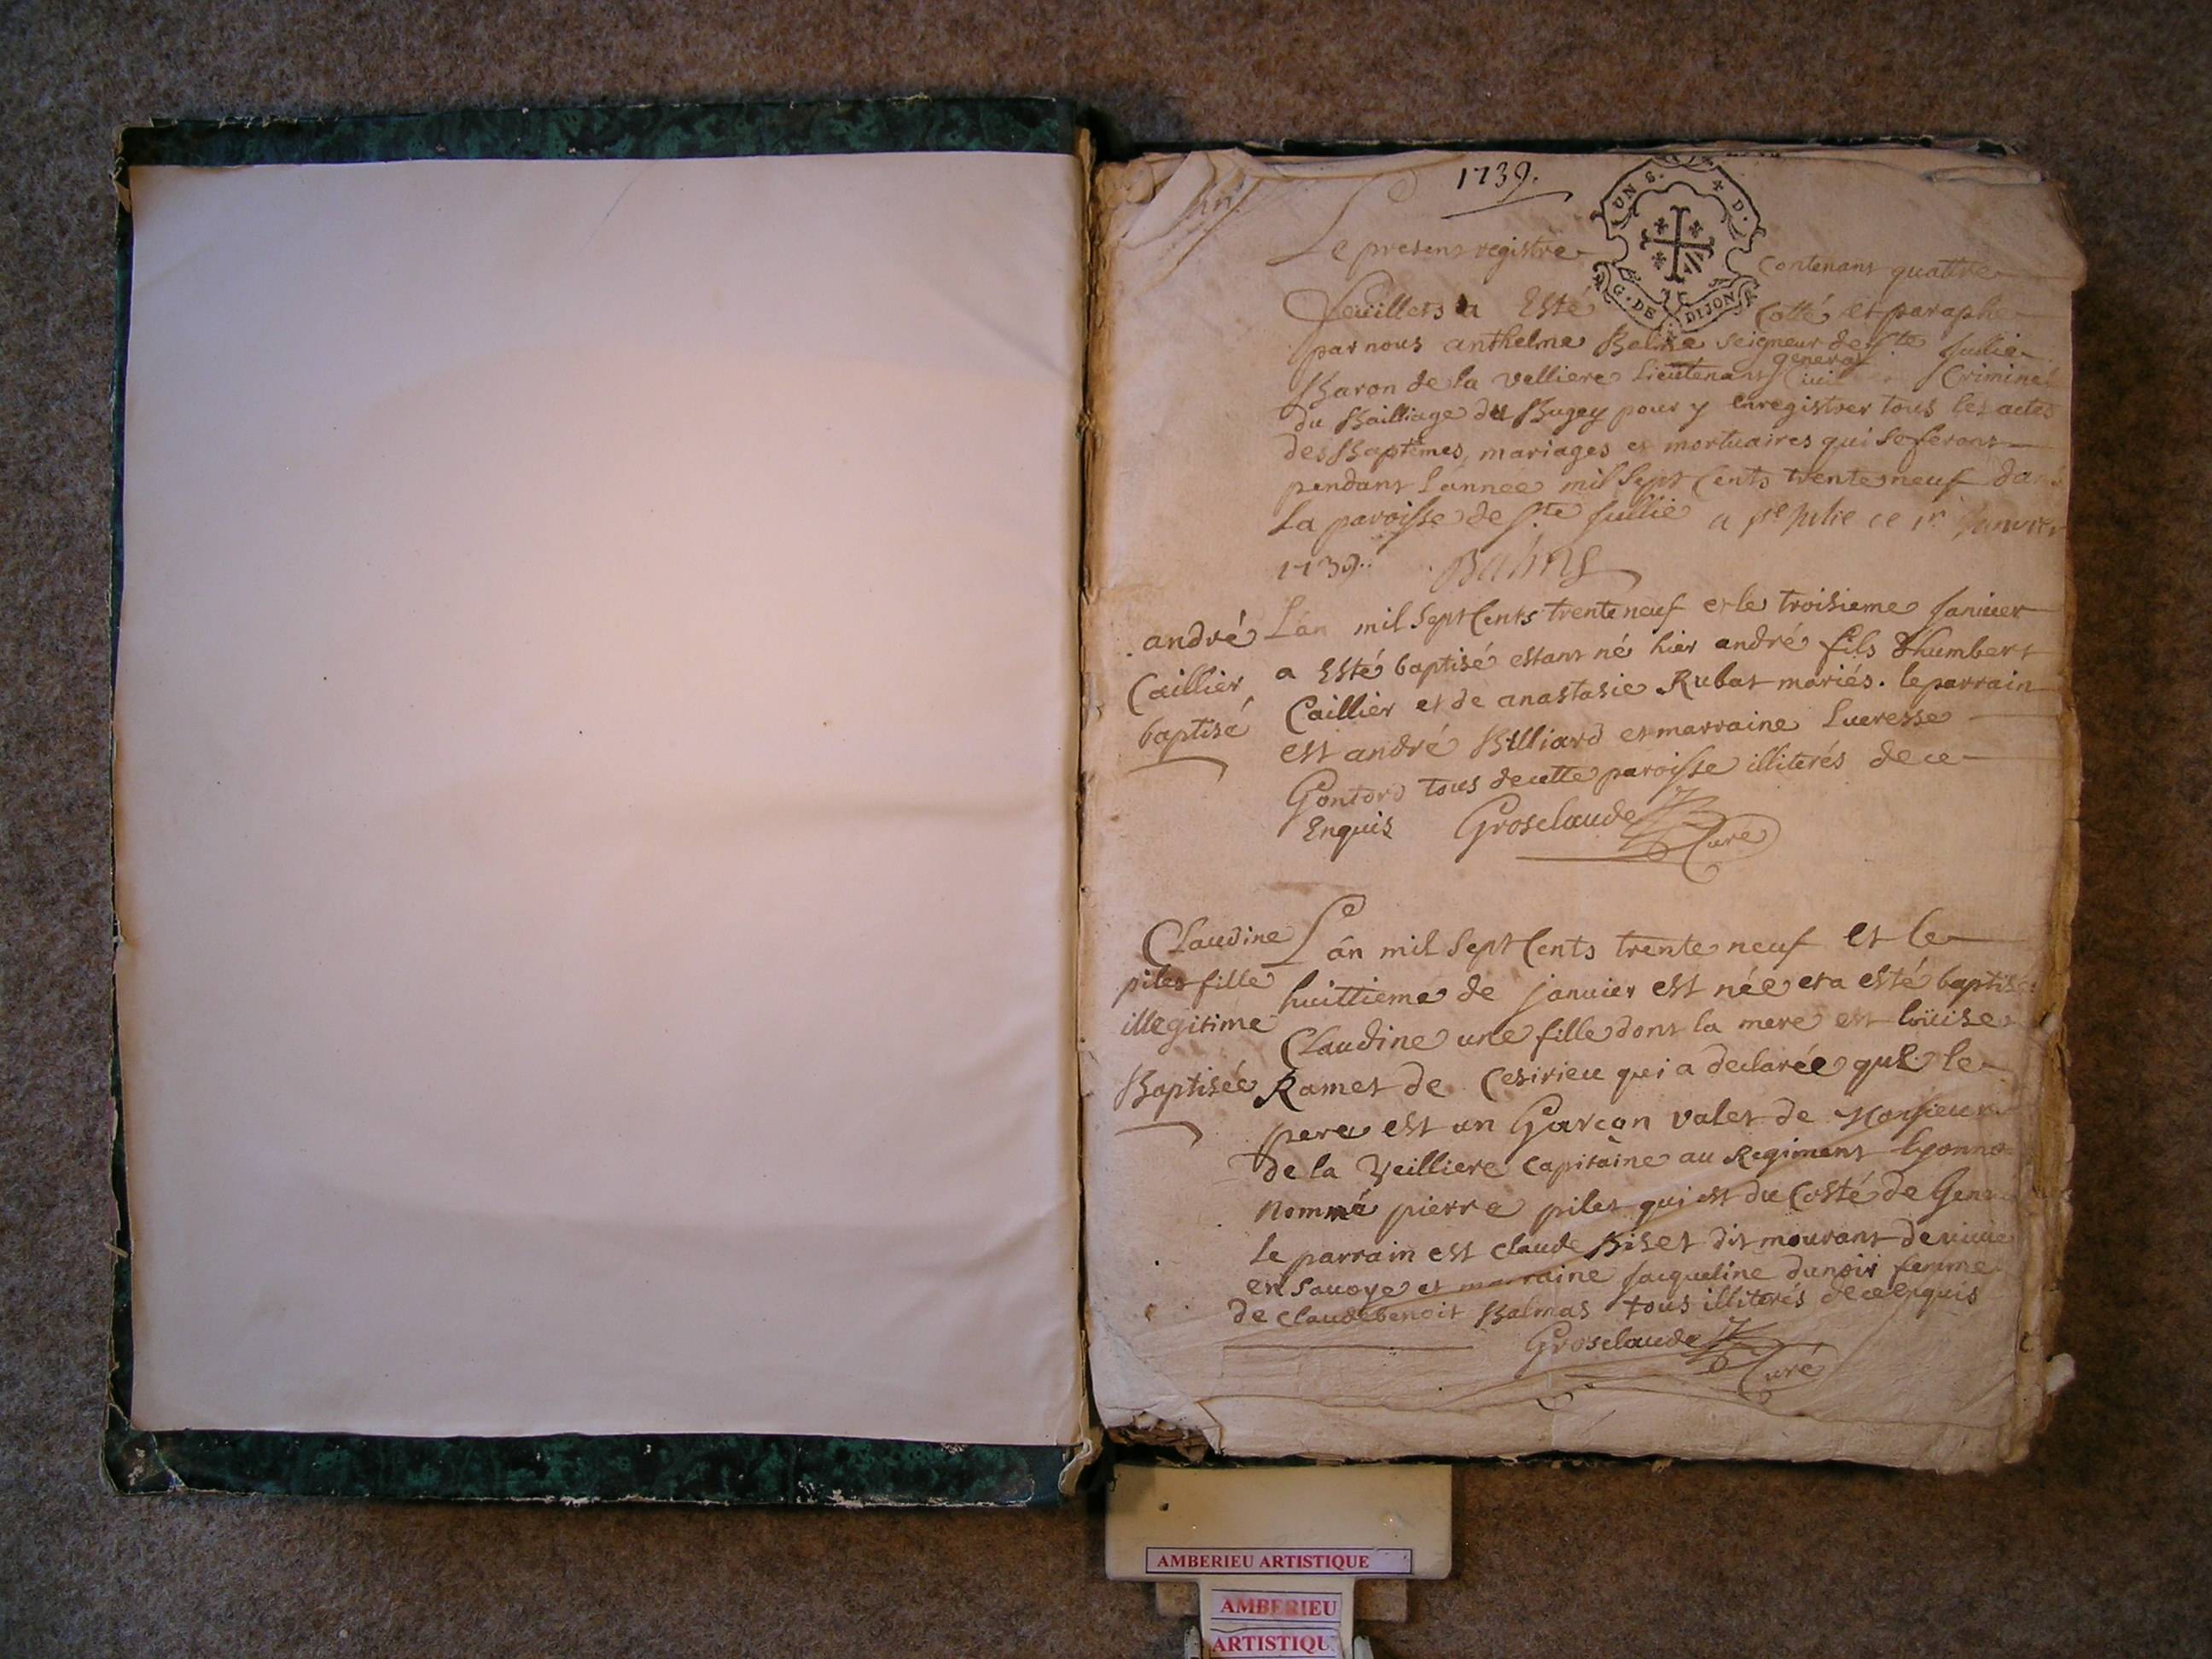 1739.
UN S. D.
G. DE DIJON
Le present registre contenant quattre
feuillets a Esté Cotté et paraphe
par nous anthelme Balme seigneur de Ste Jullie
Baron de la velliere Lieutenant general Civil et Criminel
du Bailliage du Bugey pour y enregistrer tous les actes
des Baptemes, mariages et mortuaires qui se feront
pendant L'annee mil sept Cents trente neuf dans
La paroisse de Ste Jullie a Ste Julie ce 1r Janvier
1739. Balme
andré
Caillier
baptisé
L'an mil sept Cents trente neuf et le troisieme Janvier
a Esté baptisé estant né hier andré fils d'humbert
Caillier et de anastasie Rubat mariés. le parrain
est andré Billiard et marraine Lucresse
Gontard tous de cette paroisse illiterés de ce
Enquis Grosclaude Curé
Claudine
pilet fille
illegitime
Baptisée
L'an mil sept Cents trente neuf et le
huittieme de janvier est née et a esté baptisée
Claudine une fille dont la mere est loüise
Ramet de Cesirieu qui a declarée que le
pere est un Garcon valet de Monsieur
de la Veilliere Capitaine au Regiment lyonno
Nommé pierre pilet qui est du Costé de
le parrain est claude Biset dit mourant de
en Savoye et marraine Jacqueline dunoir femme
de claude benoit Balmas tous illiterés de ce enquis
Grosclaude Curé
AMBERIEU ARTISTIQUE
AMBERIEU
ARTISTIQU